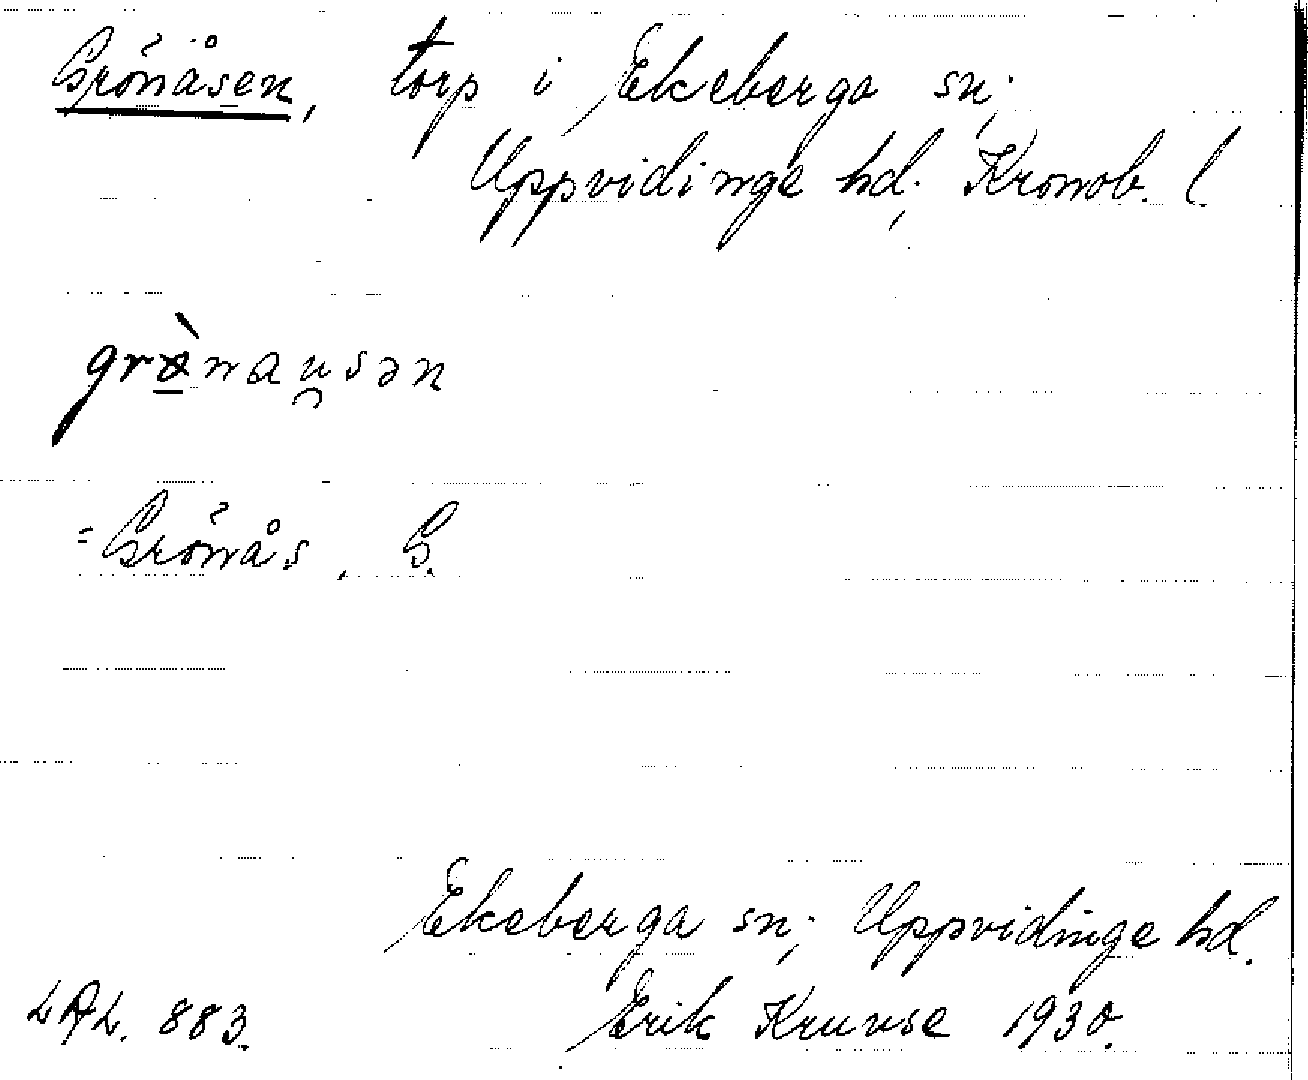 Grönåsen, torp i Ekeberga sn;
Uppvidinge hd; Kronob. l.
grø̀nau̯sən
= Grönås, G.
Ekeberga sn; Uppvidinge hd.
LAL. 883. Erik Kruuse 1930.